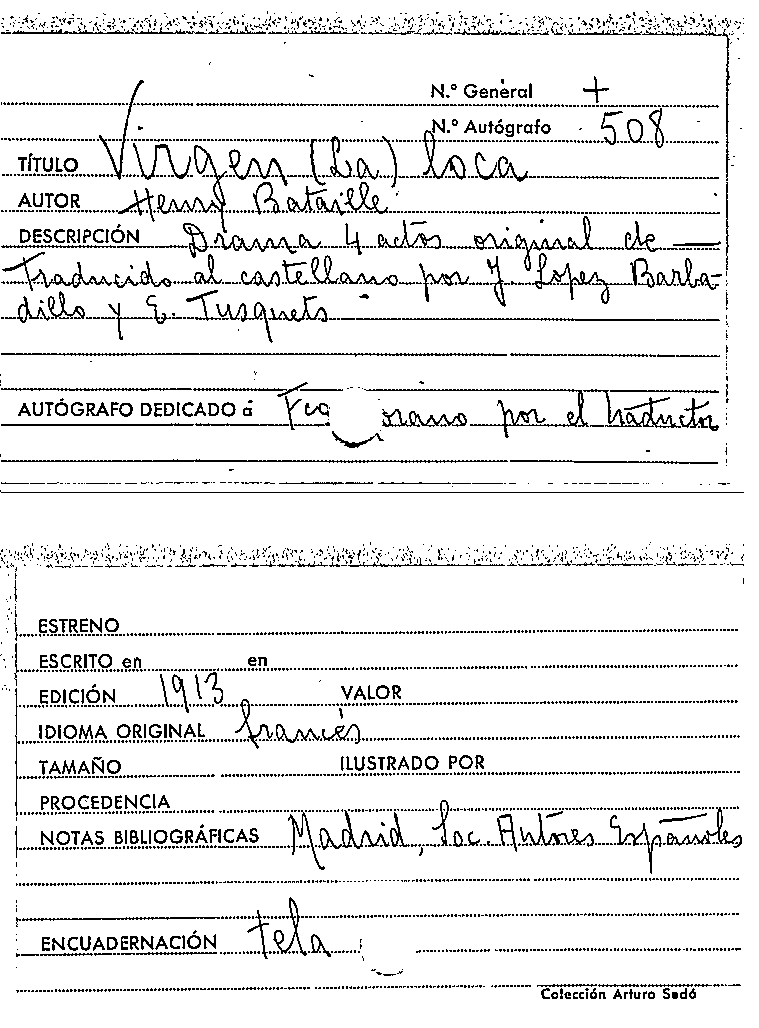 N.º General +
N.º Autógrafo 508
TÍTULO Virgen (La) loca
AUTOR Henry Bataille
DESCRIPCIÓN Drama 4 actos original de —
Traducido al castellano por J. Lopez Barba-
dillo y E. Tusquets -
AUTÓGRAFO DEDICADO a Fco orano por el traductor
ESTRENO
ESCRITO en en
EDICIÓN 1913 VALOR
IDIOMA ORIGINAL francés
TAMAÑO ILUSTRADO POR
PROCEDENCIA
NOTAS BIBLIOGRÁFICAS Madrid, Soc. Autores Españoles
ENCUADERNACIÓN tela
Colección Arturo Sedó